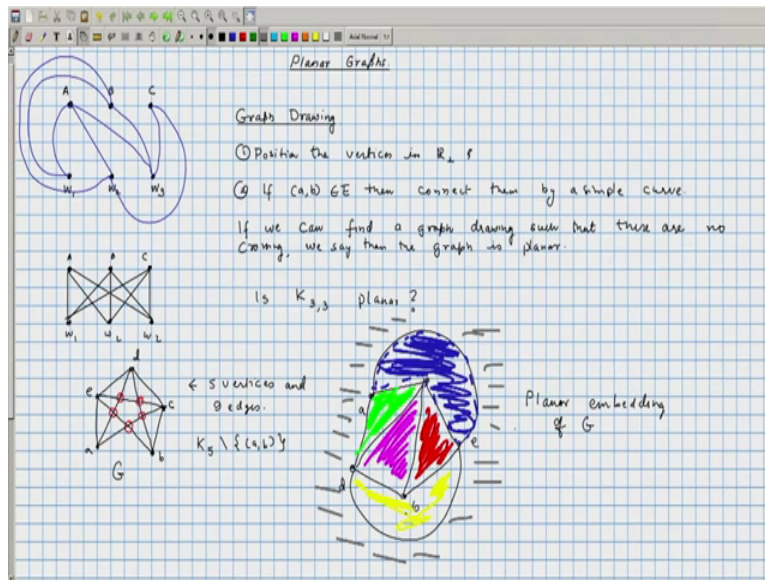 Arial Normal
Planar Graphs.
A B C
Graph Drawing
① Position the vertices in R₂ &
W₁ W₂ W₃
② If (a,b) ∈ E then connect them by a simple curve.
If we can find a graph drawing such that there are no
Crossing, we say then the graph is planar.
A B C
Is K₃,₃ planar?
W₁ W₂ W₂
d
e
c
a
b
G
← 5 vertices and
9 edges.
K₅ \ {(a,b)}
a
e
d
b
Planar embedding
of G